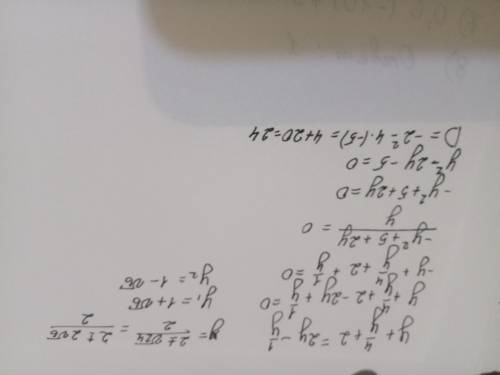 y + 4/y + 2 = 2y - 1/y
y + 4/y + 2 - 2y + 1/y = 0
-y + 4/y + 2 + 1/y = 0
(-y² + 5 + 2y)/y = 0
-y² + 5 + 2y = 0
y² - 2y - 5 = 0
D = -2² - 4·(-5) = 4 + 20 = 24
y = (2 ± √24)/2 = (2 ± 2√6)/2
y₁ = 1 + √6
y₂ = 1 - √6